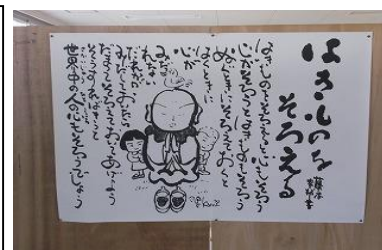 はきものを
そろえる
藤本幸邦
はきものをそろえると心もそろう
心がそろうとはきものもそろう
ぬぐときにそろえておくと
はくときに
心が
みだ
れない
だれかが
みだしておいたら
だまってそろえておいてあげよう
そうすればきっと
世界中の人の心もそろうでしょう